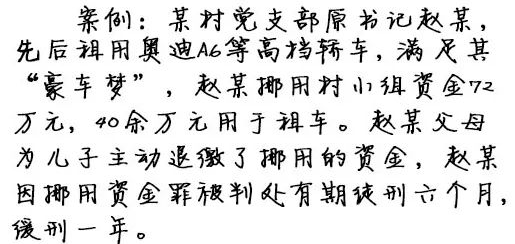 案例：某村党支部原书记赵某，
先后租用奥迪A6等高档轿车，满足其
“豪车梦”，赵某挪用村小组资金72
万元，40余万元用于租车。赵某父母
为儿子主动退缴了挪用的资金，赵某
因挪用资金罪被判处有期徒刑六个月，
缓刑一年。